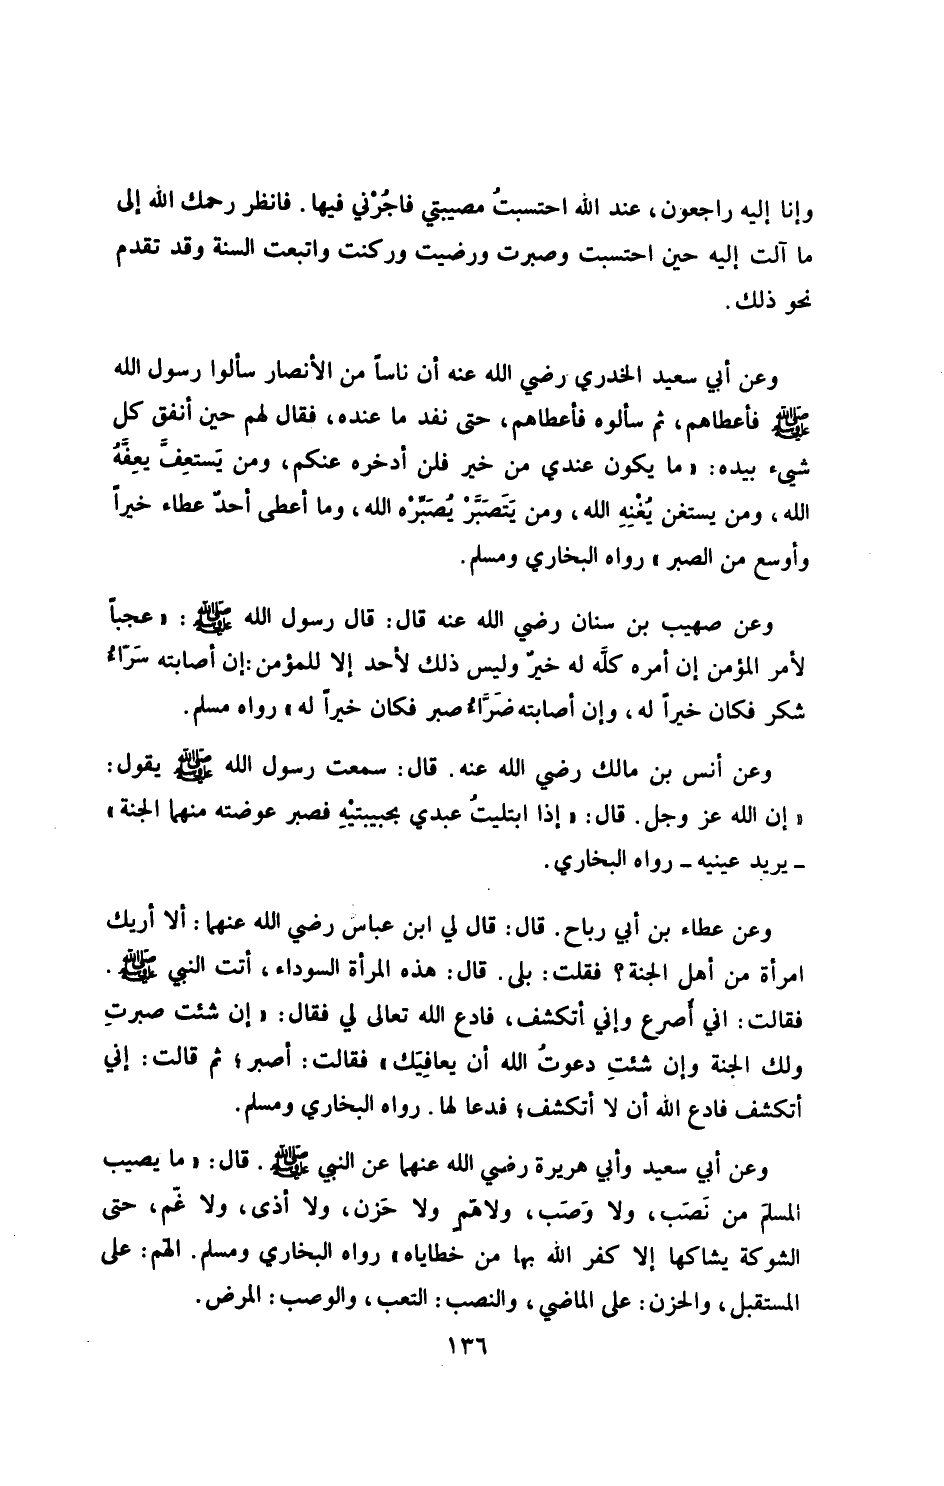 وإنا إليه راجعون، عند الله احتسبتُ مصيبتي فاجُرْني فيها. فانظر رحمك الله إلى
ما آلت إليه حين احتسبت وصبرت ورضيت وركنت واتبعت السنة وقد تقدم
نحو ذلك.
وعن أبي سعيد الخدري رضي الله عنه أن ناساً من الأنصار سألوا رسول الله
ﷺ فأعطاهم، ثم سألوه فأعطاهم، حتى نفد ما عنده، فقال لهم حين أنفق كل
شيء بيده: « ما يكون عندي من خير فلن أدخره عنكم، ومن يَستعِفَّ يعِفَّهُ
الله، ومن يستغن يُغْنِهِ الله، ومن يَتَصَبَّرْ يُصَبِّرْه الله، وما أعطى أحدٌ عطاء خيراً
وأوسع من الصبر » رواه البخاري ومسلم.
وعن صهيب بن سنان رضي الله عنه قال: قال رسول الله ﷺ: « عجباً
لأمر المؤمن إن أمره كلَّه له خيرٌ وليس ذلك لأحد إلا للمؤمن: إن أصابته سَرّاءُ
شكر فكان خيراً له، وإن أصابته ضَرَّاءُ صبر فكان خيراً له » رواه مسلم.
وعن أنس بن مالك رضي الله عنه. قال: سمعت رسول الله ﷺ يقول:
« إن الله عز وجل. قال: « إذا ابتليتُ عبدي بحبيبتيْهِ فصبر عوضته منهما الجنة »
ـ يريد عينيه ـ رواه البخاري.
وعن عطاء بن أبي رباح. قال: قال لي ابن عباس رضي الله عنهما: ألا أريك
امرأة من أهل الجنة؟ فقلت: بلى. قال: هذه المرأة السوداء، أتت النبي ﷺ.
فقالت: اني أُصرع وإني أتكشف، فادع الله تعالى لي فقال: « إن شئت صبرتِ
ولك الجنة وإن شئتِ دعوتُ الله أن يعافِيَك » فقالت: أصبر؛ ثم قالت: إني
أتكشف فادع الله أن لا أتكشف؛ فدعا لها. رواه البخاري ومسلم.
وعن أبي سعيد وأبي هريرة رضي الله عنهما عن النبي ﷺ. قال: « ما يصيب
المسلمَ من نَصَب، ولا وَصَب، ولا همّ ولا حَزن، ولا أذى، ولا غّم، حتى
الشوكة يشاكها إلا كفر الله بها من خطاياه » رواه البخاري ومسلم. الهم: على
المستقبل، والحزن: على الماضي، والنصب: التعب، والوصب: المرض.
١٣٦